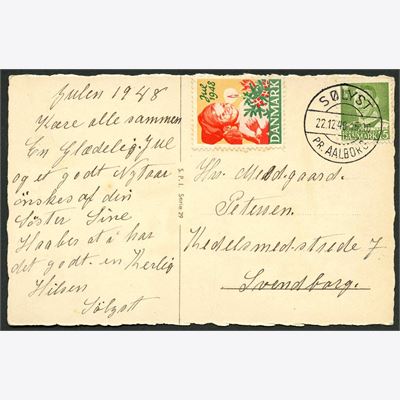 Julen 1948
Kære alle sammen
En Glædelig Jul
og et godt Nytaar
ønskes af din
Søster Sine
Haabes at i har
det godt. en Kerlig
Hilsen
Sølyst
S.P.J. Serie 29
Jul
1948
DANMARK
SØLYST
22.12.48
PR. AALBORG
DANMARK
5
Hr. Meddgaard.
Petersen.
Kedelsmedstræde 7
Svendborg.